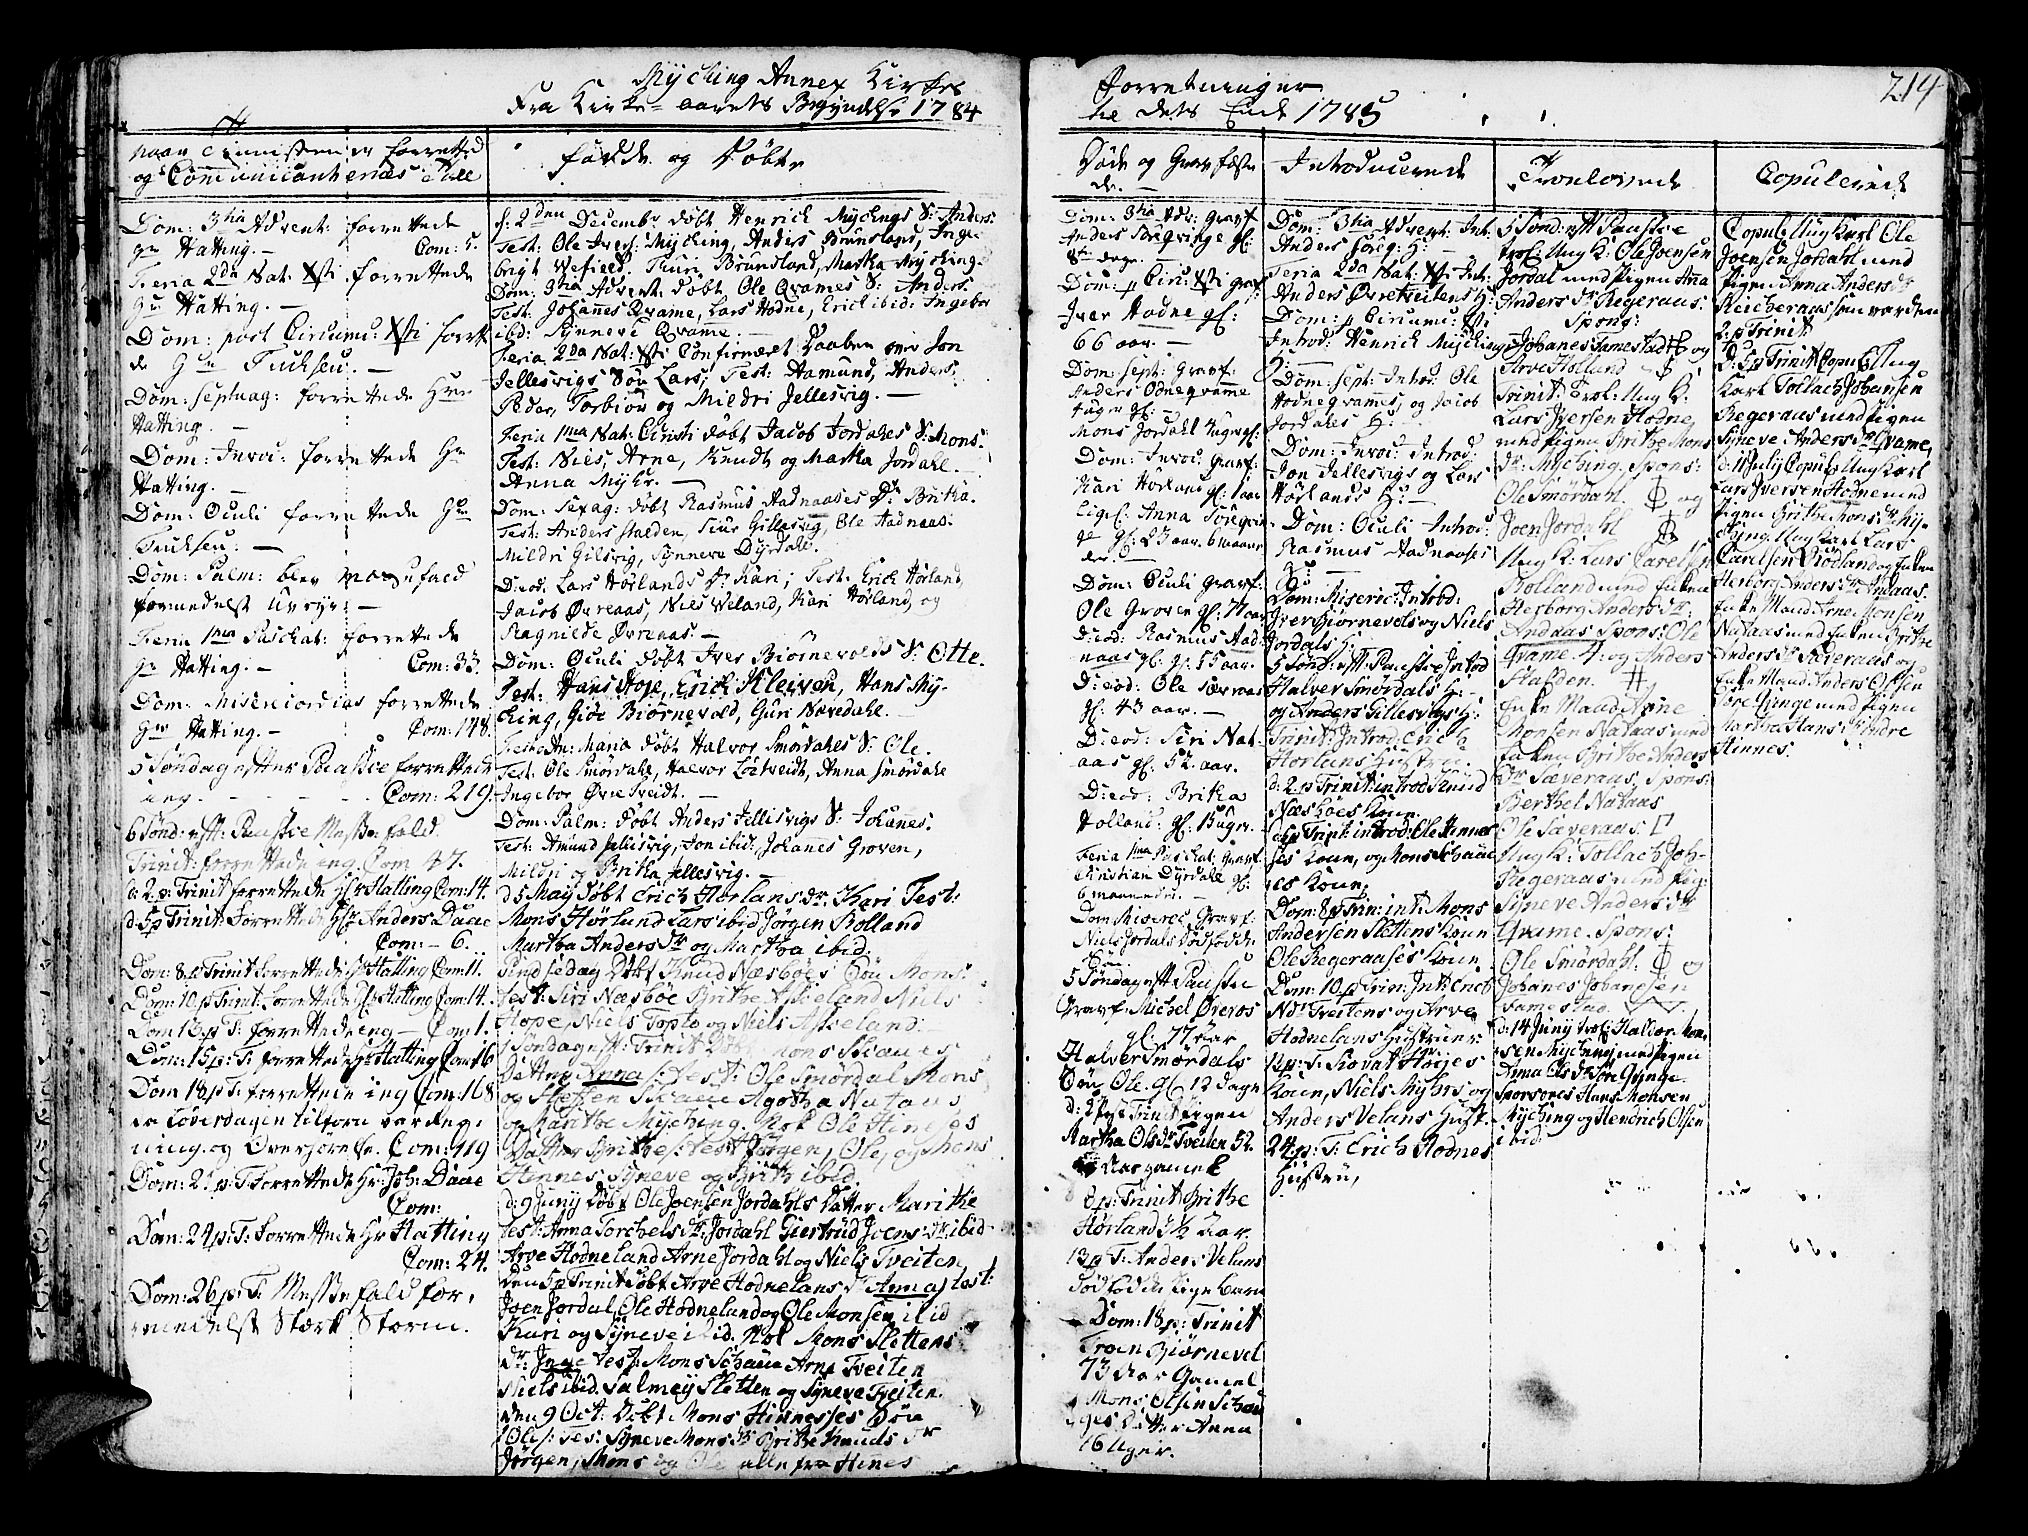 Mÿching Annex Kirkes
Fra Kirke-aarets Begyndelse 1784
Forretninger
til dets Ende 1785
214
naar Tienisten er forretted
og Communicanternes Tall
Dom: 3tia Advent: forrettede
Hr Hatting. — Com: 5.
Feria 2da Nat: Xsti forrettede
Hr Hatting. —
Dom: post Circumc: Xsti forrette
de Hr Fuchsen. —
Dom: Septuag: forrettede Herr
Hatting. —
Dom: Invoc: forrettede Hr
Hatting. —
Dom: Oculi forrettede Hr
Fuchsen. —
Dom: Palm: blev Messefald
formedelst Uveyr. —
Feria 1ma Paschat: forrettede
Hr Hatting. — Com: 33.
Dom: Misericordias forrettede
Hr Hatting. — Com: 148.
5 Søndag efter Paaske forrettede
ieg. — Com: 219.
6 Sönd: eft: Paaske Messe fald.
Trinit: forrettede ieg Com 47.
d: 2 p. Trinit forrettede Hr Hatting Com: 14.
d: 5 p Trinit: forrettede Hr Anders Daae
Com: — 6.
Dom: 8 p Trinit forrettede Hr Hatting Com: 11.
Dom: 10 p Trinit. forrettede Hr Hatting Com: 14.
Dom 13 p T: forrettede ieg — Com 1.
Dom: 15 p: T: forrettede Hr Hatting Com: 16
Dom 18 p T: forrettede ieg Com: 168
Dom: 21 p: T forrettede Hr: Joh: Daae
Com:
Dom: 24 p: T: forrettede Hr Hatting
Com: 24.
Dom: 26 p: T: Messe fald for,
medelst Stærk Storm.
fødde og Döbte
d: 2den Decembr døbt Henrich Mychings S: Anders.
Test: Ole Ivers: Myching, Anders Brunsland, Inge-
brigt Wefield. Turi Brunsland, Martha Myching.
Dom: 3tia Advent: døbt Ole Qvames S: Anders
Test: Johannes Qvame, Lars Hodne, Erich ibid: Ingebor
ibid: Synnevi Qvamme. —
Feria 2da Nat: Xsti Confirmeret Daaben over Jon
Jellesvigs Søn Lars; Test: Aamund, Anders,
Peder, Torbiør og Mildri Jellesvig. —
Feria 1ma Nat: Christi døbt Jacob Jordahls S: Mons:
Test: Niels, Arne, Knudt og Martha Jordahl.
Anna Myhr. —
Dom: Sexag: døbt Rasmus Hadnaases Dr Britha.
Test: Anders Stalden, Siur Gillesvig, Ole Hadnaas.
Mildri Gilsvig, Synneva Dyrdahl.
Dieod. Lars Hørlands Dr Kari; Test: Erich Hørland,
Jacob Øvreaas, Niels Weland, Kari Hørland, og
Ragnilde Øvreaas. —
Dom: Oculi døbt Iver Biørnevolds S: Otte.
Test: Hans Hope, Erich Kleiven, Hans My-
ching, Giøe Biørnevold, Guri Navedahl.
Festo An: Maria døbt Halvor Smørdahls S: Ole.
Test: Ole Smørdahl, Halvor Løetveidt, Anna Smørdahl
Ingebor Øvretveidt. —
Dom: Palm: døbt Anders Jellisvigs S: Johanes.
Test: Amund Jellisvig, Jon ibid: Johanes Groven,
Mildri og Britha Jellesvig. —
d 5 May døbt Erich Horlans Dr Kari Test:
Mons Hörland Lars ibid Jörgen Rolland
Martha Anders Dr og Martha ibid.
Pindsedag Döbt Knud Næsböes Sön Mons:
test: Siri Næsböe Brithe Askeland Niels
Hope, Niels Topto og Niels Askeland.
1 Søndag eft: Trinit Döbt Mons Skaues
Datter Anna: Test: Ole Smördal Mons
og Steffen Skaue Agotha Nataas
og Marithe Myching. Nok Ole Hineses
Datter Brithe: test Jörgen, Ole, og Mons
Hennes Syneve og Brith ibid.
d: 9 Juny döbt Ole Joensen Jordahls datter Marithe
test: Anna Torchels Dr, Jordahl Giertrud Joens Dr, ibid
Arve Hodneland Arne Jordahl og Niels Tveiten
den 5 p Trinit döbt Arve Hodnelans Dr Anna, test:
Joen Jordal, Ole Hodneland og Ole Monsen ibid
Kari og Syneve ibid. Nok Mons Slettens
Dr: Inge test: Mons Schaue Arne Tveiten
Niels ibid. Salmey Sletten og Syneve Tveiten.
den 9 Oct: Döbt Mons Hinneses Sön
Ole: Tes: Syneve Mons Dr Brithe Knuds Dr
Jörgen, Mons og Ole alle fra Hines
Døde og Gravfæste
de. —
Dom: 3tia Adv: gravf:
Anders Foregvinge gl:
8te dage.
Dom: p Circ: Xsti gravf:
Iver Hodne gl:
66 aar. —
Dom: Sept: gravf:
Anders Odneqvamme
Mons Jordahl
Dom: Invoc: gravf:
Kari Hørland gl: 1 aar
Dom: Oculi gravf:
Ole Groven gl: 77 aar
Dieod: Rasmus Had-
naas gl: 55 aar.
Dieod: Ole Særvaas
gl: 43 aar. —
Dieod: Siri Nat-
aas gl: 52. aar.
Dieod: Britha
Holland: gl: 8 uger.
Feria 1ma Paschat: gravf:
Christian Dyrdahl gl:
6 maaneder. —
Dom Miserec: Gravf:
Niels Jordals Dödfødde
Sön
5 Søndag eft Paaske
Gravf: Michel Øvreos
gl: 77 aar
Halver Smördals
Sön Ole. Gl 12 dage
d: 2 p Trinit Pigen
Martha Ols Dr Tveiten 52.
Aar gamel
8 p: Trinit Brithe
Hørland 3½ Aar.
13 p T: Anders Velans
Dödfødde Pige barn
Dom: 18 p: Trinit
Troen Biörnevel
73 Aar Gamel
Mons Olsen Schau
ges datter Anna
16 Uger.
Introducerede
Dom: 3tia Advent Int:
Anders Foreg: H: —
Feria 2da Nat: Xsti Int:
Anders Øvretveitens H:
Dom: p Circumc: Xsti
Introd: Henrich Mychings
H:
Dom: Sept: Introd: Ole
Hodneqvammes, og Jacob
Jordahls H: —
Dom: Invoc: Introd:
Jon Jellesvigs og Lars
Hørlands H: —
Dom: Oculi Introd:
Rasmus Hadnaases
H: —
Dom: Miseric: Introd:
Iver Biørnevels og Niels
Jordals H:
5 Sönd: eft: Paaske Introd
Halver Smørdals H:
og Anders Gillesvigs H:
Trinit: Introd: Erich
Horlans Hustrue
d: 2 p Trinit: introd Knud
Næsböes Kone.
d 5 p Trint: introd: Ole Hennes
ses Kone, og Mons Schaue
ges Kone,
Dom: 8 p Trin: int: Mons
Andersen Slettens Kone
Ole Regeraases Kone.
Dom: 10 p Trin: Int: Erich
Ndr Tveitens og Arve
Hodnelans Hustruer.
12 p: T: Siovat Høijes
Kone, Niels Myhrs og
Anders Velans Hust.
24 p: T: Erich Hodnes
Hustru,
Trolovede
5 Sönd: eft Paaske
trol: Ung K: Ole Joensen
Jordal med Pigen Anna
Anders Dr Regeraas:
Spons:
Johanes Samestad og
Arve Holland
Trinit: Trol: Ung K:
Lars Iversen Hodne
med Pigen Brithe Mons
Dr. Myching. Spons:
Ole Smördahl. og
Joen Jordahl
Ung K: Lars Carelsen
Rolland med Enken
Herborg Anders Dr:
Andaas Spons: Ole
Qvame. og Anders
Stalden.
Enke Mand Arne
Monsen Nataas med
Enken Brithe Anders
Dr Sæveraas. Spons:
Berthel Nataas
Ole Sæveraas.
Ung K: Tollach Joh-
Regeraas med Pig:
Syneve Anders Dr
Qvame. Spons:
Ole Smördahl. og
Johanes Johanesen
Samestad.
d: 14 Juny trol: Haldor Mon
sen Myching med Pigen
Anna Ols Dr Söre Gynge.
Sponsores Hans Monsen
Myching og Hendrich Olsen
ibid
Copulerede
Copul: Ung Karl Ole
Joensen Jordahl med
Pigen Anna Anders Dr
2. p Trinit
D: 5 p Trinit Copul: Ung
Karl Tollach Johansen
Regeraas med Pigen
Syneve Anders Dr Qvame,
d: 11 July Copul: Ung Karl
Lars Iversen Hodne med
Pigen Brithe Mons Dr My-
ching. Ung Karl Lars
Carelsen Rödland og Enken
Herborg Anders Dr Andaas.
Enke Mand Arne Monsen
Nataas med Enken Brithe
Anders Dr Sæveraas og
Enke Mand Anders Olsen
Søre Giinge med Pigen
Martha Hans Dr Indre
Hinnes.